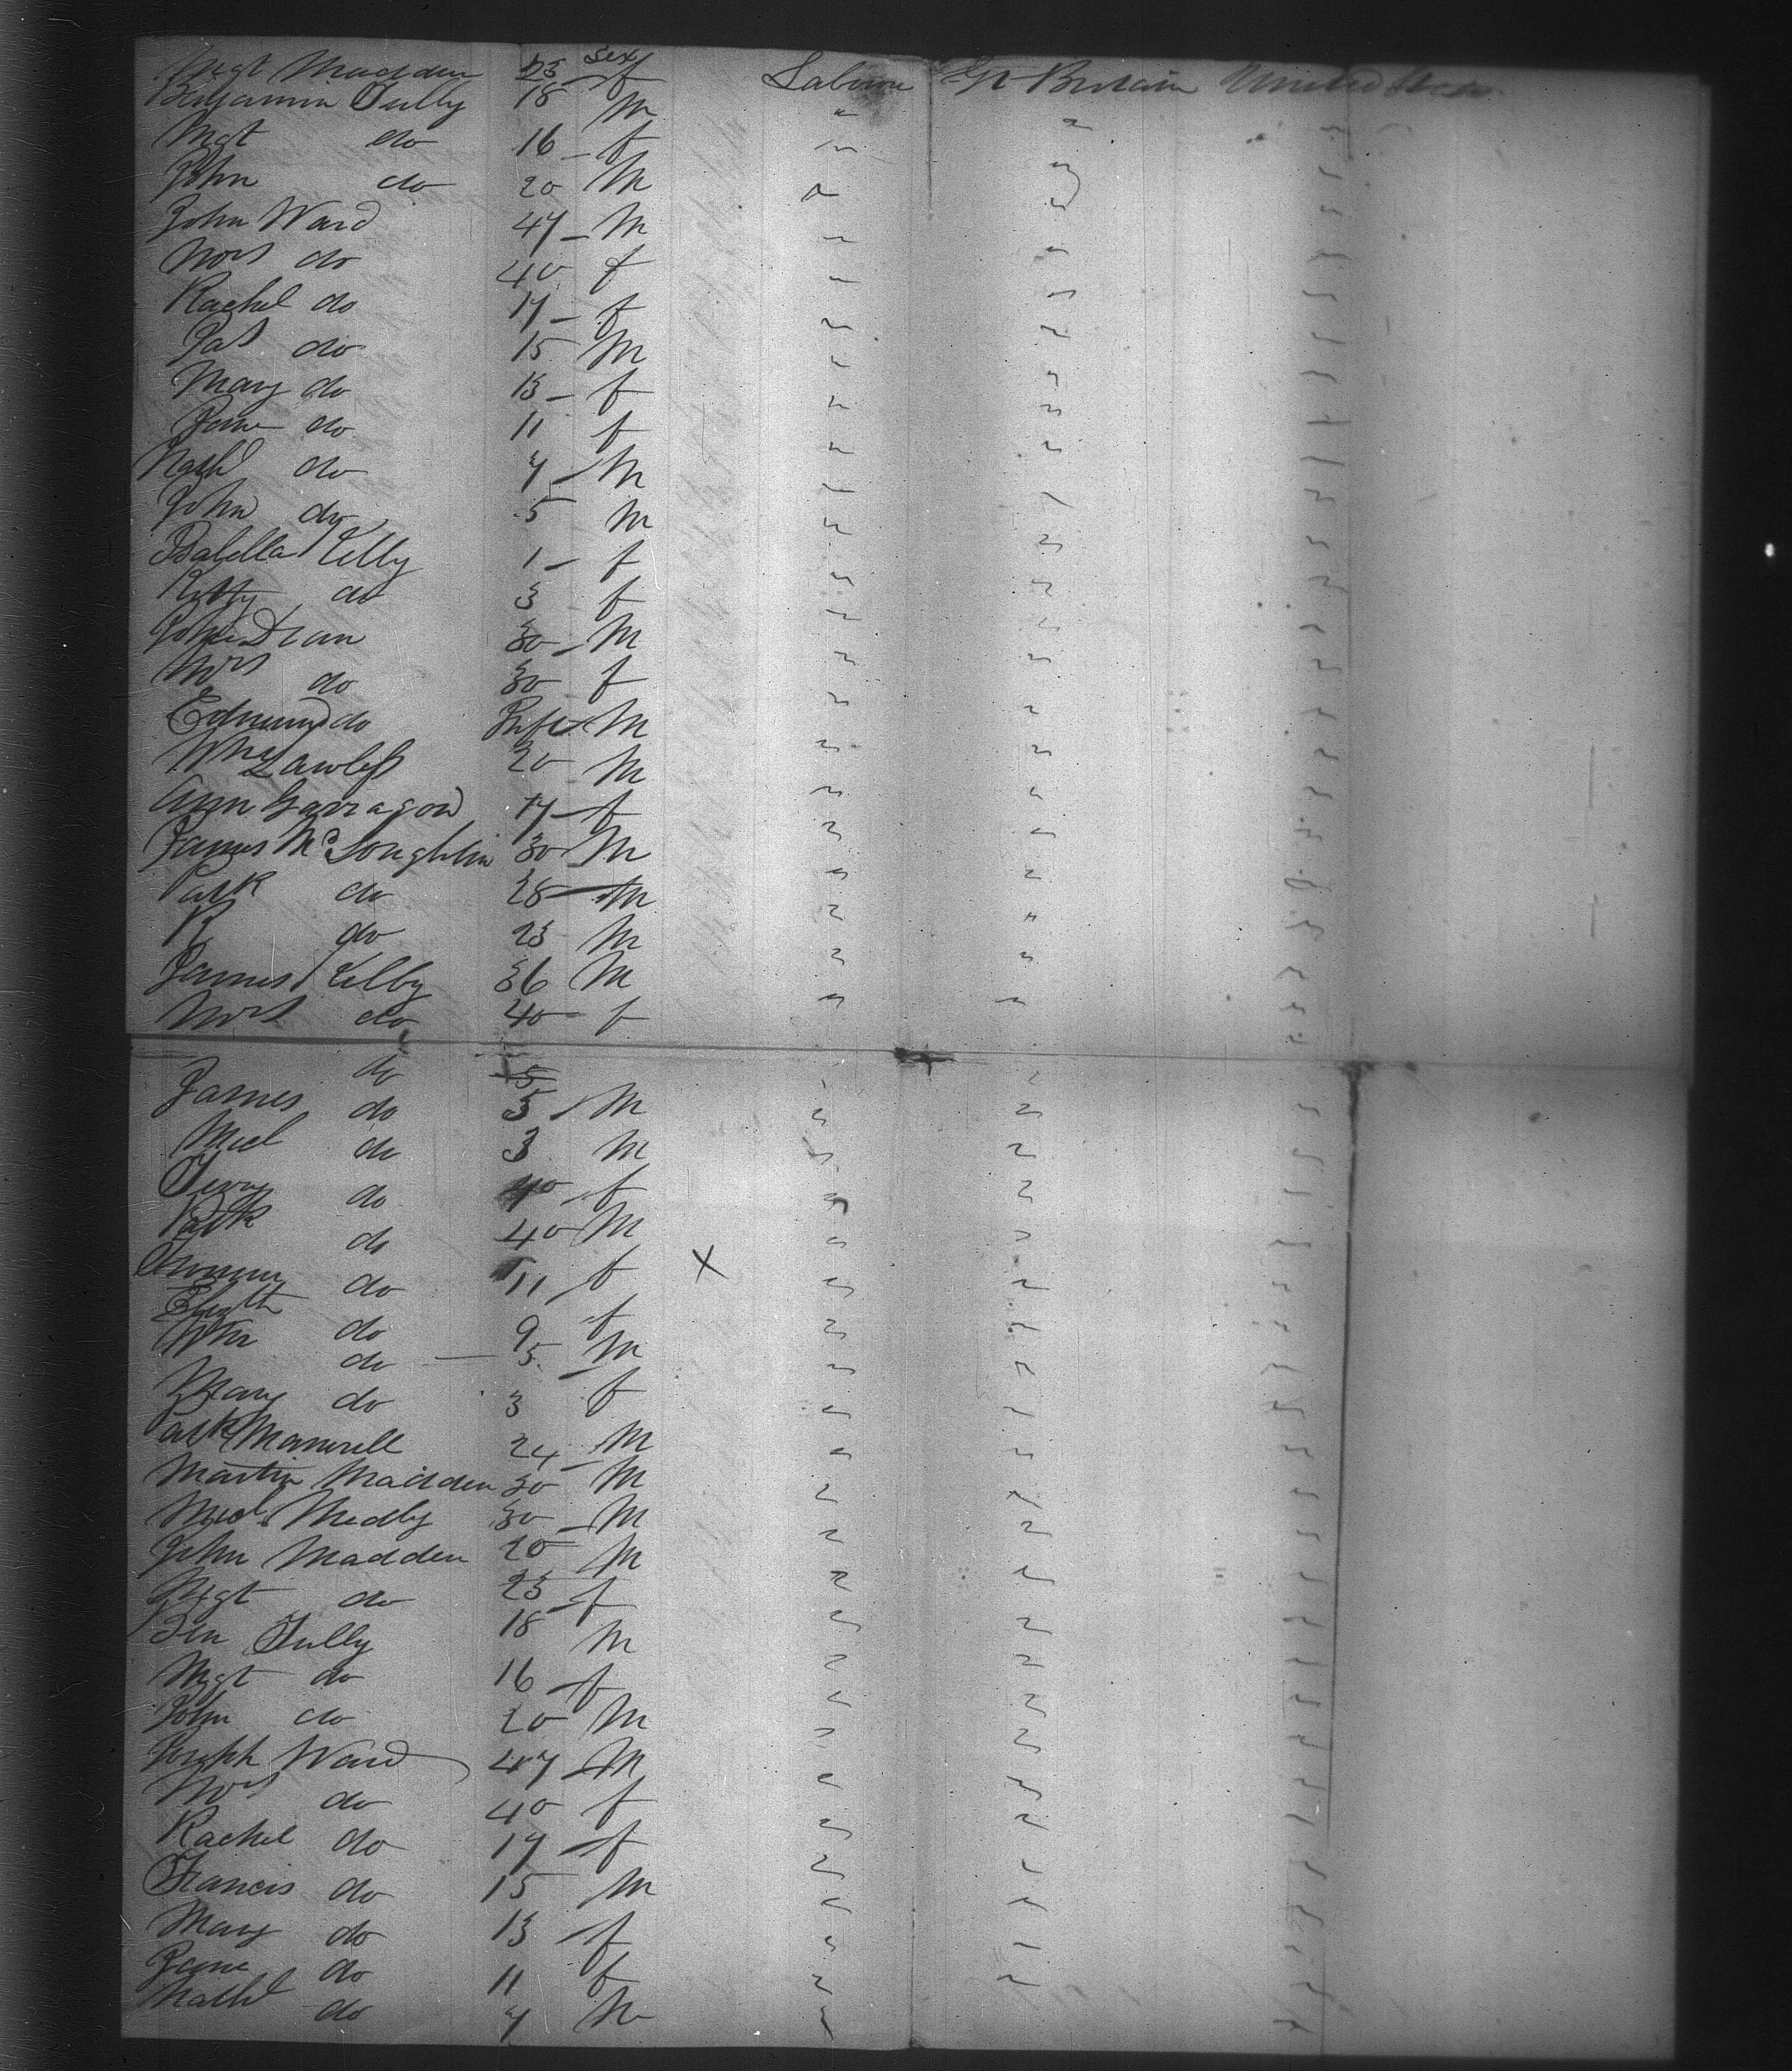 Sex
Mgt Madden 23 f Labour Gt Britain United States
Benjamin Tully 18 M " "
Mgt do 16 f " "
John do 20 M " "
John Ward 47 M " "
Mrs do 40 f " "
Rachel do 17 f " "
do 15 M " "
Mary do 13 f " "
Jane do 11 f " "
Nathl do 7 M " "
John do 5 M " "
Isabella Kelly 1 f " "
Kitty do 3 f " "
John Dean 30 M " "
Mrs do 30 f " "
Edmund do Inft M " "
Wm Lawless 20 M " "
Ann Garragon 17 f " "
James McLoughlin 30 M " "
Patk do 28 M " "
do 23 M " "
James Kelly 36 M " "
Mrs do 40 f " "
do 5
James do 5 M " "
Micl do 3 M " "
do 40 f " "
Patk do 40 M " "
do 11 f X " "
Elizth do 9 f " "
Wm do 5 M " "
Mary do 3 f " "
Patk Manwell 24 M " "
Martin Madden 30 M " "
Micl Medly 30 M " "
John Madden 20 M " "
Mgt do 23 f " "
Ben Tully 18 M " "
Mgt do 16 f " "
John do 20 M " "
Joseph Ward 47 M " "
Mrs do 40 f " "
Rachel do 17 f " "
Francis do 15 M " "
Mary do 13 f " "
Jane do 11 f " "
Nathl do 7 M "